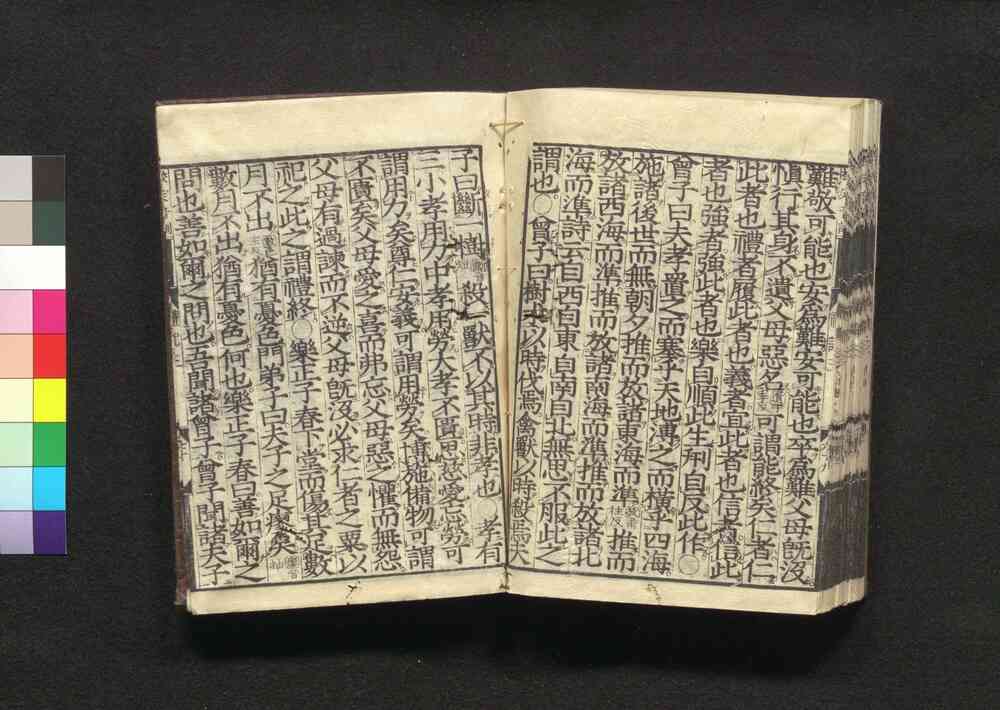 難敬可能也安爲難安可能也卒爲難父母既沒
慎行其身不遺父母惡名可謂能終矣仁者仁
此者也禮者履此者也義者宜此者也信者信此
者也強者強此者也樂自順此生刑自反此作
曾子曰夫孝置之而塞乎天地溥之而橫乎四海
施諸後世而無朝夕推而放諸東海而準推而
放諸西海而準推而放諸南海而準推而放諸北
海而準詩云自西自東自南自北無思不服此之
謂也○曾子曰樹木以時伐焉禽獸以時殺焉夫
子曰斷一樹殺一獸不以其時非孝也○孝有
三小孝用力中孝用勞大孝不匱思慈愛忘勞可
謂用力矣尊仁安義可謂用勞矣博施備物可謂
不匱矣父母愛之喜而弗忘父母惡之懼而無怨
父母有過諫而不逆父母既沒必求仁者之粟以
祀之此之謂禮終○樂正子春下堂而傷其足數
月不出猶有憂色門弟子曰夫子之足瘳矣
數月不出猶有憂色何也樂正子春曰善如爾之
問也善如爾之問也吾聞諸曾子曾子聞諸夫子